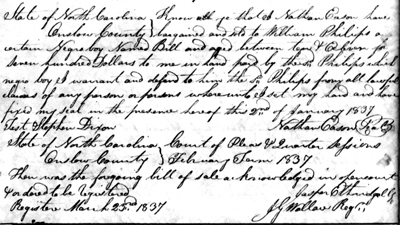 State of North Carolina } Know all ye that I Nathan Eason have
Onslow County } bargained and sold to William Philips a
certain Negro boy Named Bill and aged between ten &
seven hundred Dollars to me in hand paid by the sd Philips which
negro boy I warrant and defend to him the sd Philips from all lawful
claims of any person or persons whereunto I set my hand and have
fixed my seal in the presence hereof this 23d of January 1837
Test Stephen Dixon Nathan Eason
State of North Carolina } Court of Pleas & Quarter Sessions
Onslow County } February Term 1837
Then was the forgoing bill of sale acknowledged in open court
& ordered to be registered Jasper Etheridge
Registered March 25th 1837 J G Wallace Regr